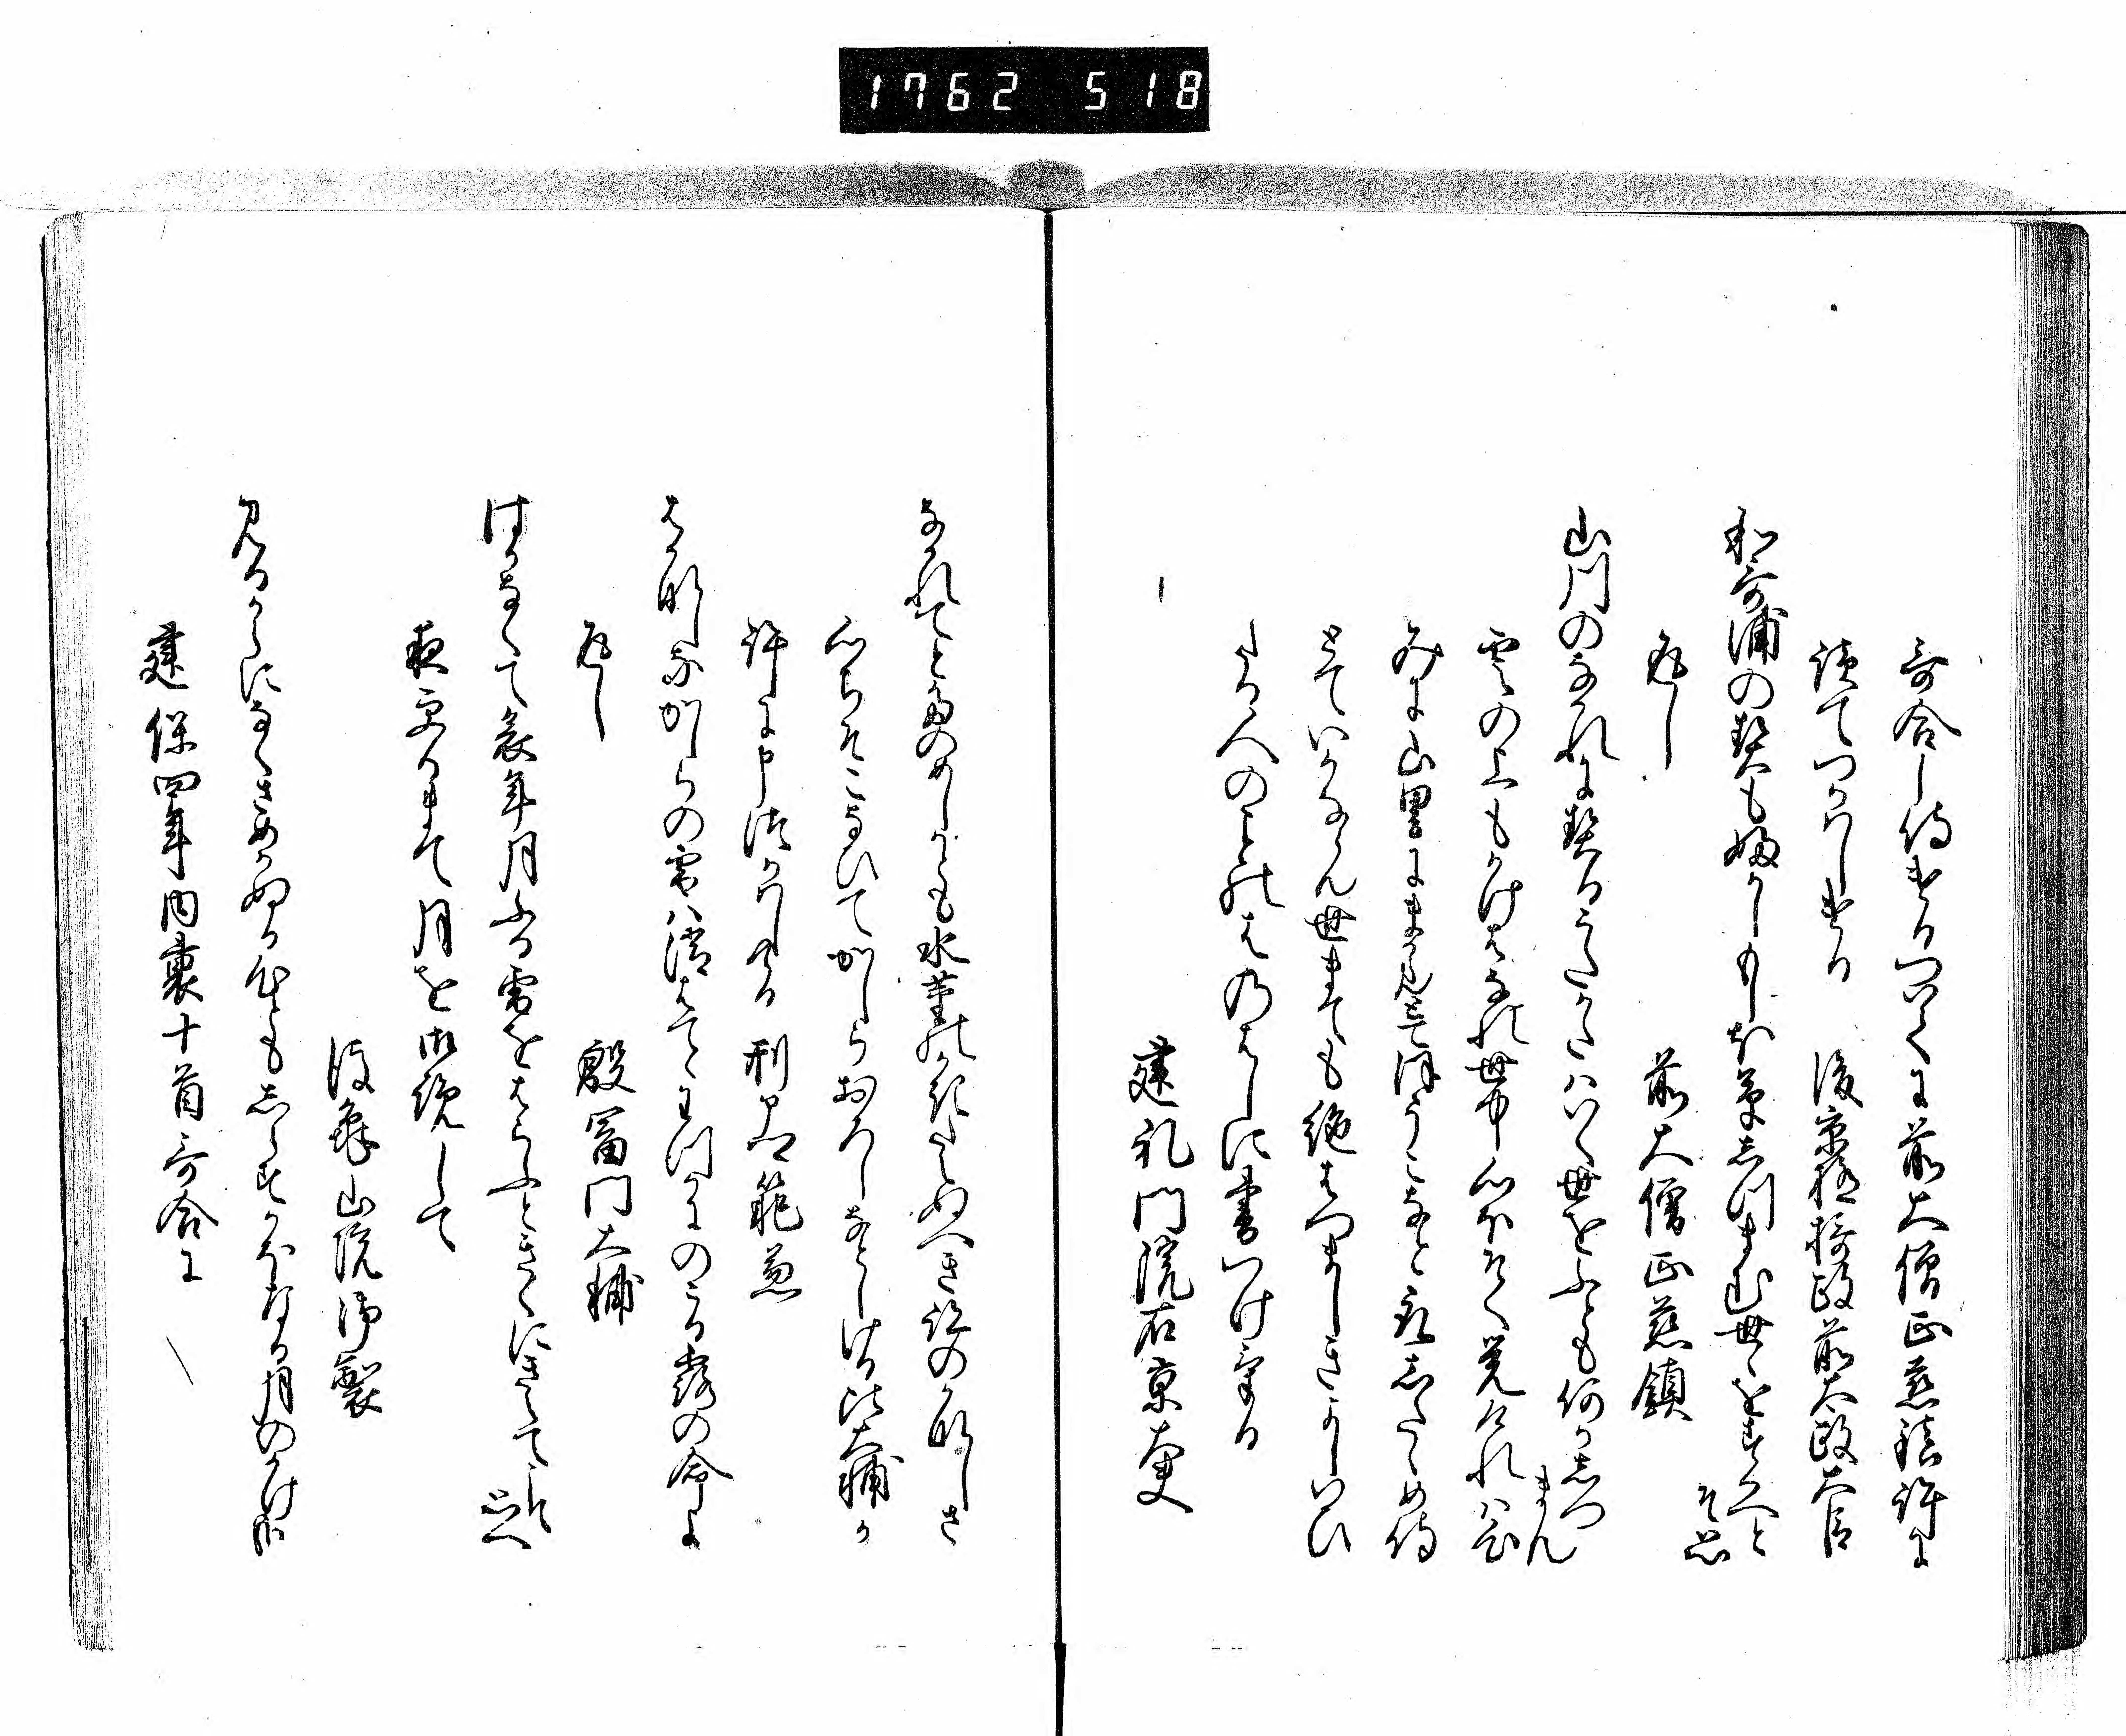 1762 518
哥合し侍けるつゐてに前大僧正慈鎮許に
読てつかはしける 後京極摂政前太政大臣
和哥浦の契もふかしもしほ草しつまむ世々をすくへと
そ思
返し 前大僧正慈鎮
山川のなかれに契るうたかたはいく世をふとも何かしつ
まん
雲の上もかけはなれ世中心ほそく覚けれは
みに山里にまかりて法うこなと取したゝめ侍
とていかならん世まても絶はつましきよしいひ
たる人のことのはのはしに書つけける
建礼門院右京大夫
なかれてとたのめしかとも水茎のかきたえぬへき跡のかなしさ
心ちそこなひてかしらおろしなとしける比大輔か
許に申つかはしける 刑部卿範兼
はかなしなかしらの雪は消はてゝきつにのこる露の命よ
返し 殷冨門大輔
はかなくて家年月ふる雪をはらふときくにきえてこそ
思へ
夜更るまて月を御覧して
後亀山院御製
見るからになくさめかぬる心ともしらすかほなる月のかけ哉
建保四年内裏十首哥合に